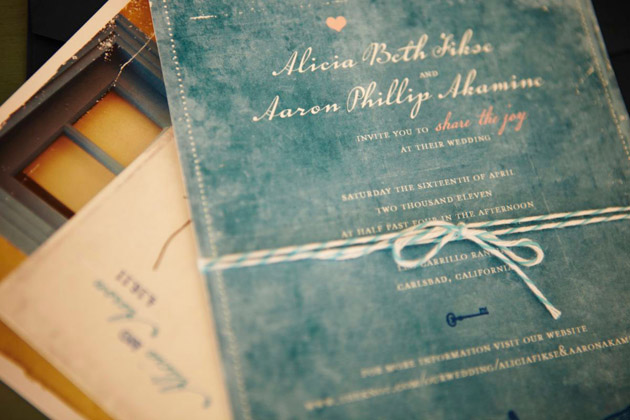 Alicia Beth Fikse
AND
Aaron Phillip Akamine
INVITE YOU TO share the joy
AT THEIR WEDDING
SATURDAY THE SIXTEENTH OF APRIL
TWO THOUSAND ELEVEN
AT HALF PAST FOUR IN THE AFTERNOON
CARRILLO RAN
CARLSBAD, CALIFORNIA
FOR MORE INFORMATION VISIT OUR WEBSITE
.COM/OURWEDDING/ALICIAFIKSE&AARONAKAM
Alicia AND Aaron
4.16.11